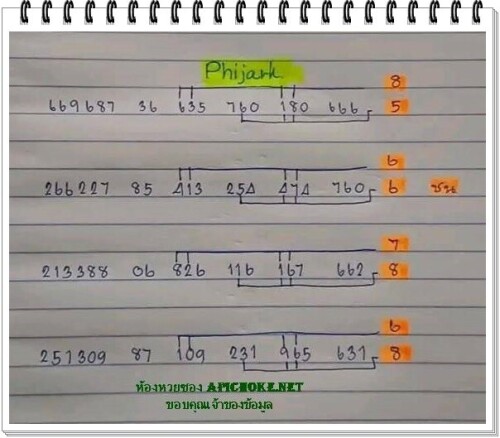 Phijark
8
669687 36 635 760 180 666 5
6
266227 85 413 254 474 760 6 ชน
7
213388 06 826 116 167 662 8
6
251309 87 109 231 965 631 8
ห้องหวยซอง APICHOKE.NET
ขอบคุณเจ้าของข้อมูล